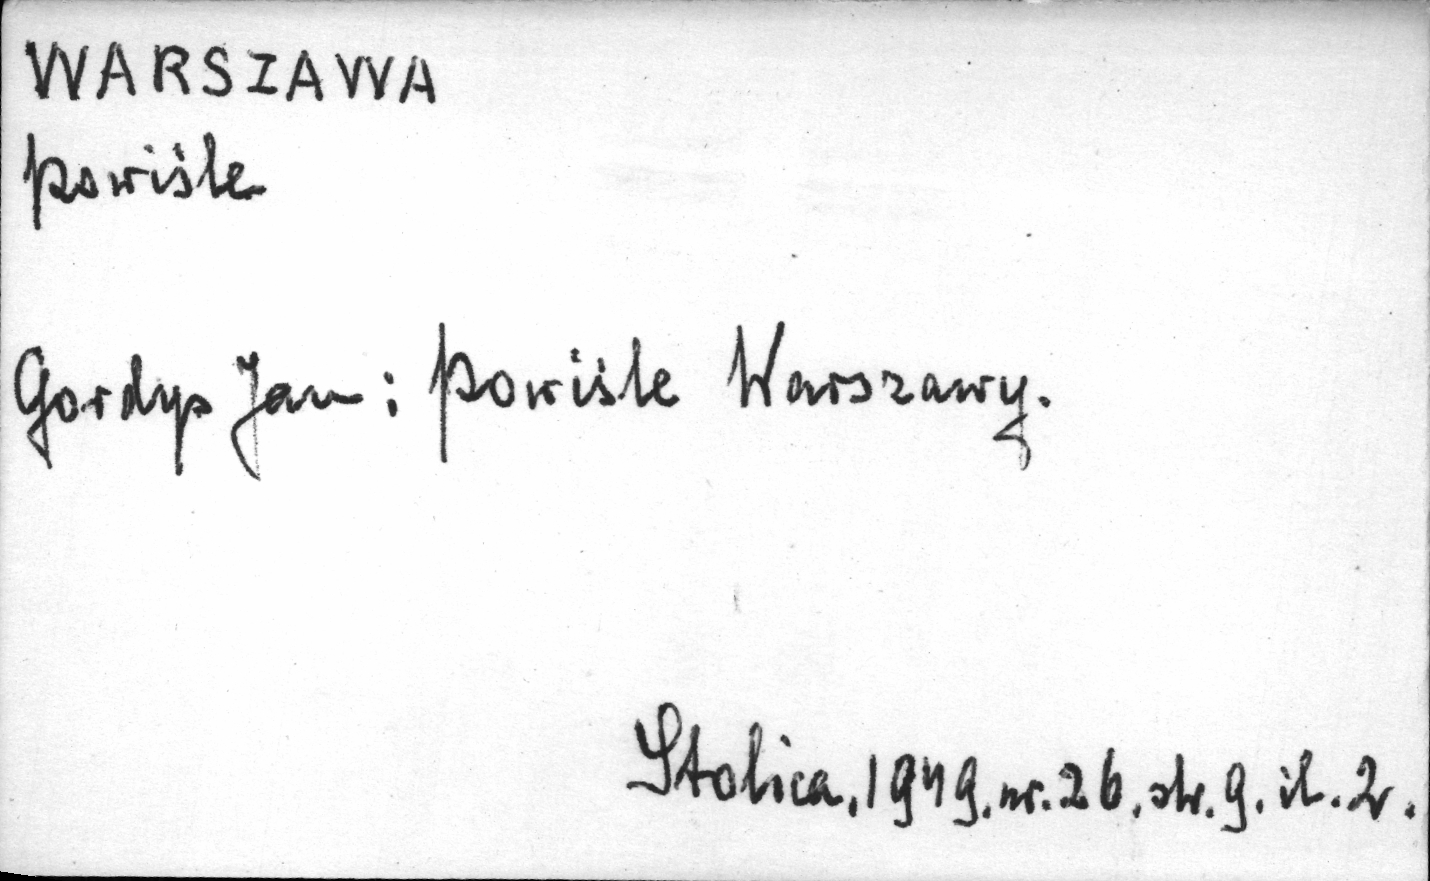 WARSZAWA
Powiśle
Gordys Jan: Powiśle Warszawy.
Stolica, 1949, nr. 26, str. 9. il. 2.